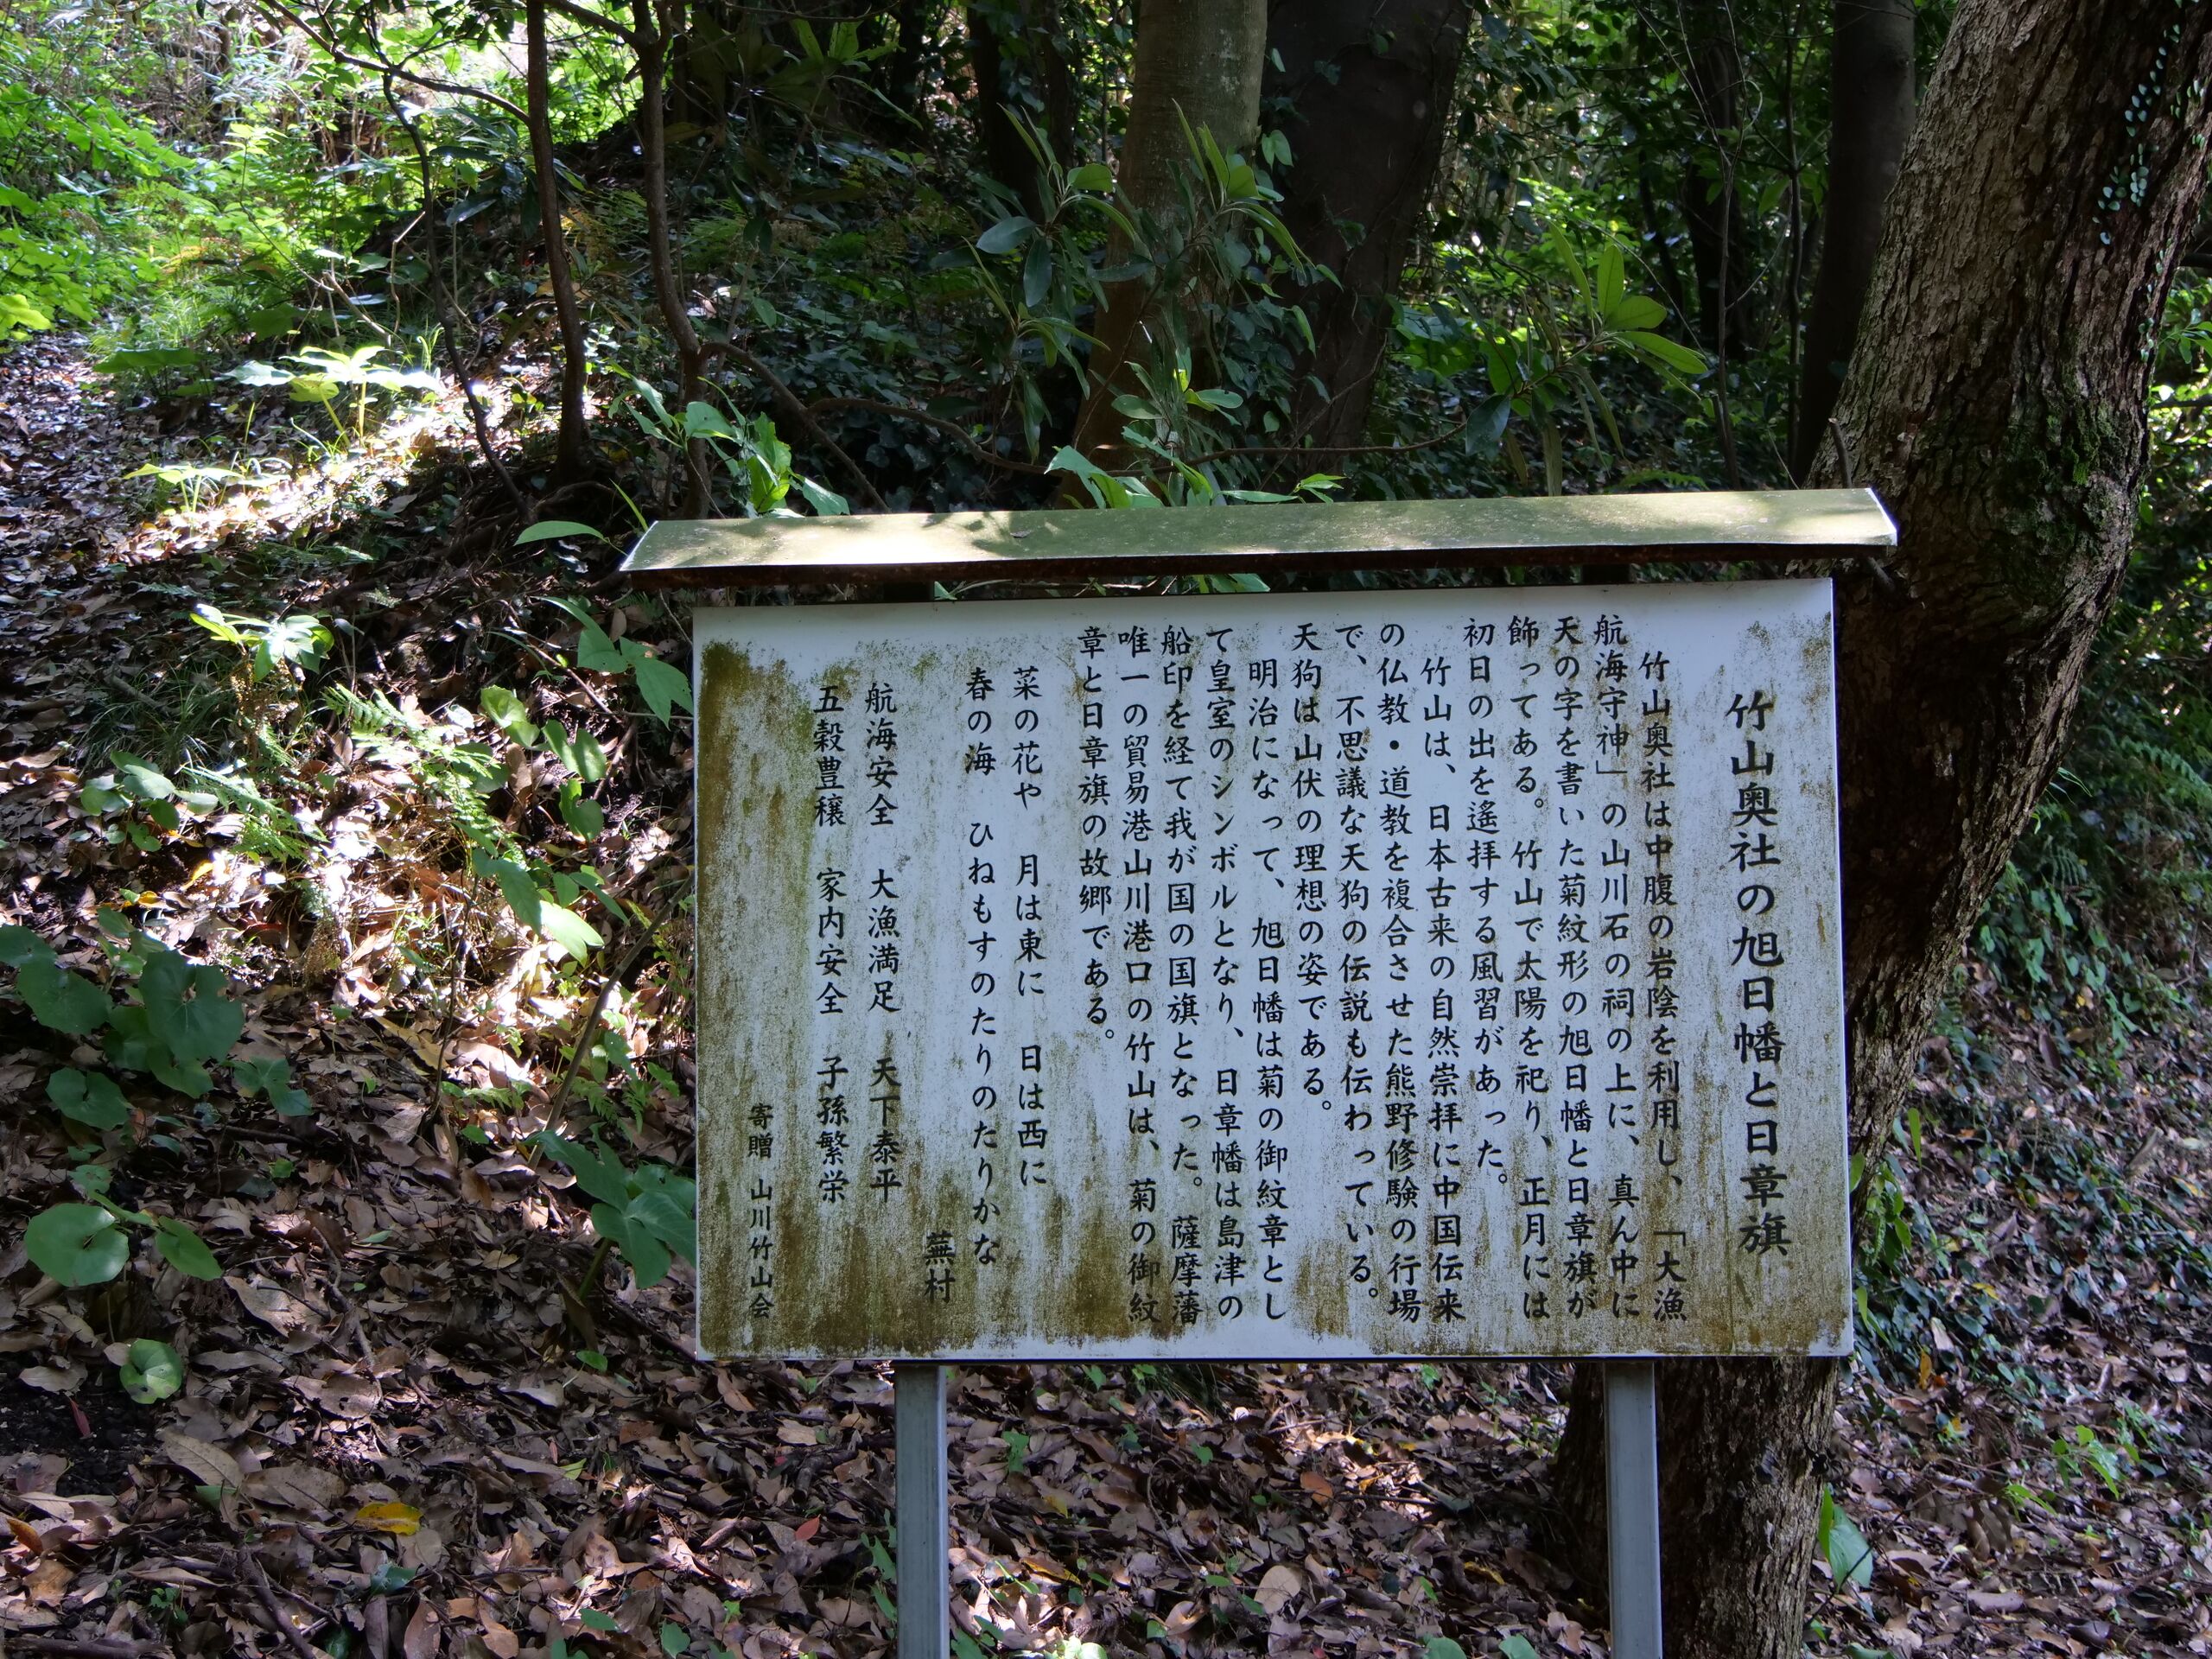 竹山奥社の旭日幡と日章旗
竹山奥社は中腹の岩陰を利用し、「大漁
航海守神」の山川石の祠の上に、真ん中に
天の字を書いた菊紋形の旭日幡と日章旗が
飾ってある。竹山で太陽を祀り、正月には
初日の出を遙拝する風習があった。
竹山は、日本古来の自然崇拝に中国伝来
の仏教・道教を複合させた熊野修験の行場
で、不思議な天狗の伝説も伝わっている。
天狗は山伏の理想の姿である。
明治になって、旭日幡は菊の御紋章とし
て皇室のシンボルとなり、日章幡は島津の
船印を経て我が国の国旗となった。薩摩藩
唯一の貿易港山川港口の竹山は、菊の御紋
章と日章旗の故郷である。
菜の花や　月は東に　日は西に
春の海　ひねもすのたりのたりかな
蕪村
航海安全　大漁満足　天下泰平
五穀豊穣　家内安全　子孫繁栄
寄贈　山川竹山会